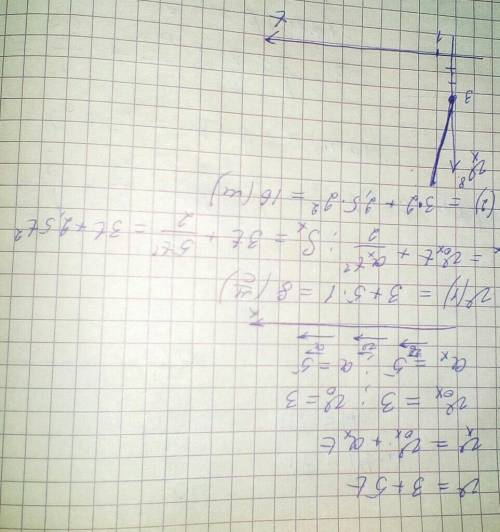 v = 3 + 5t
vₓ = v₀ₓ + aₓt
v₀ₓ = 3 ; v₀ = 3
aₓ = 5 ; a = 5
x
v(1) = 3 + 5·1 = 8 (м/с)
= v₀ₓt + aₓt²/2 ; Sₓ = 3t + 5t²/2 = 3t + 2,5t²
(2) = 3·2 + 2,5·2² = 16 (м)
vₓ
8
3
1
t